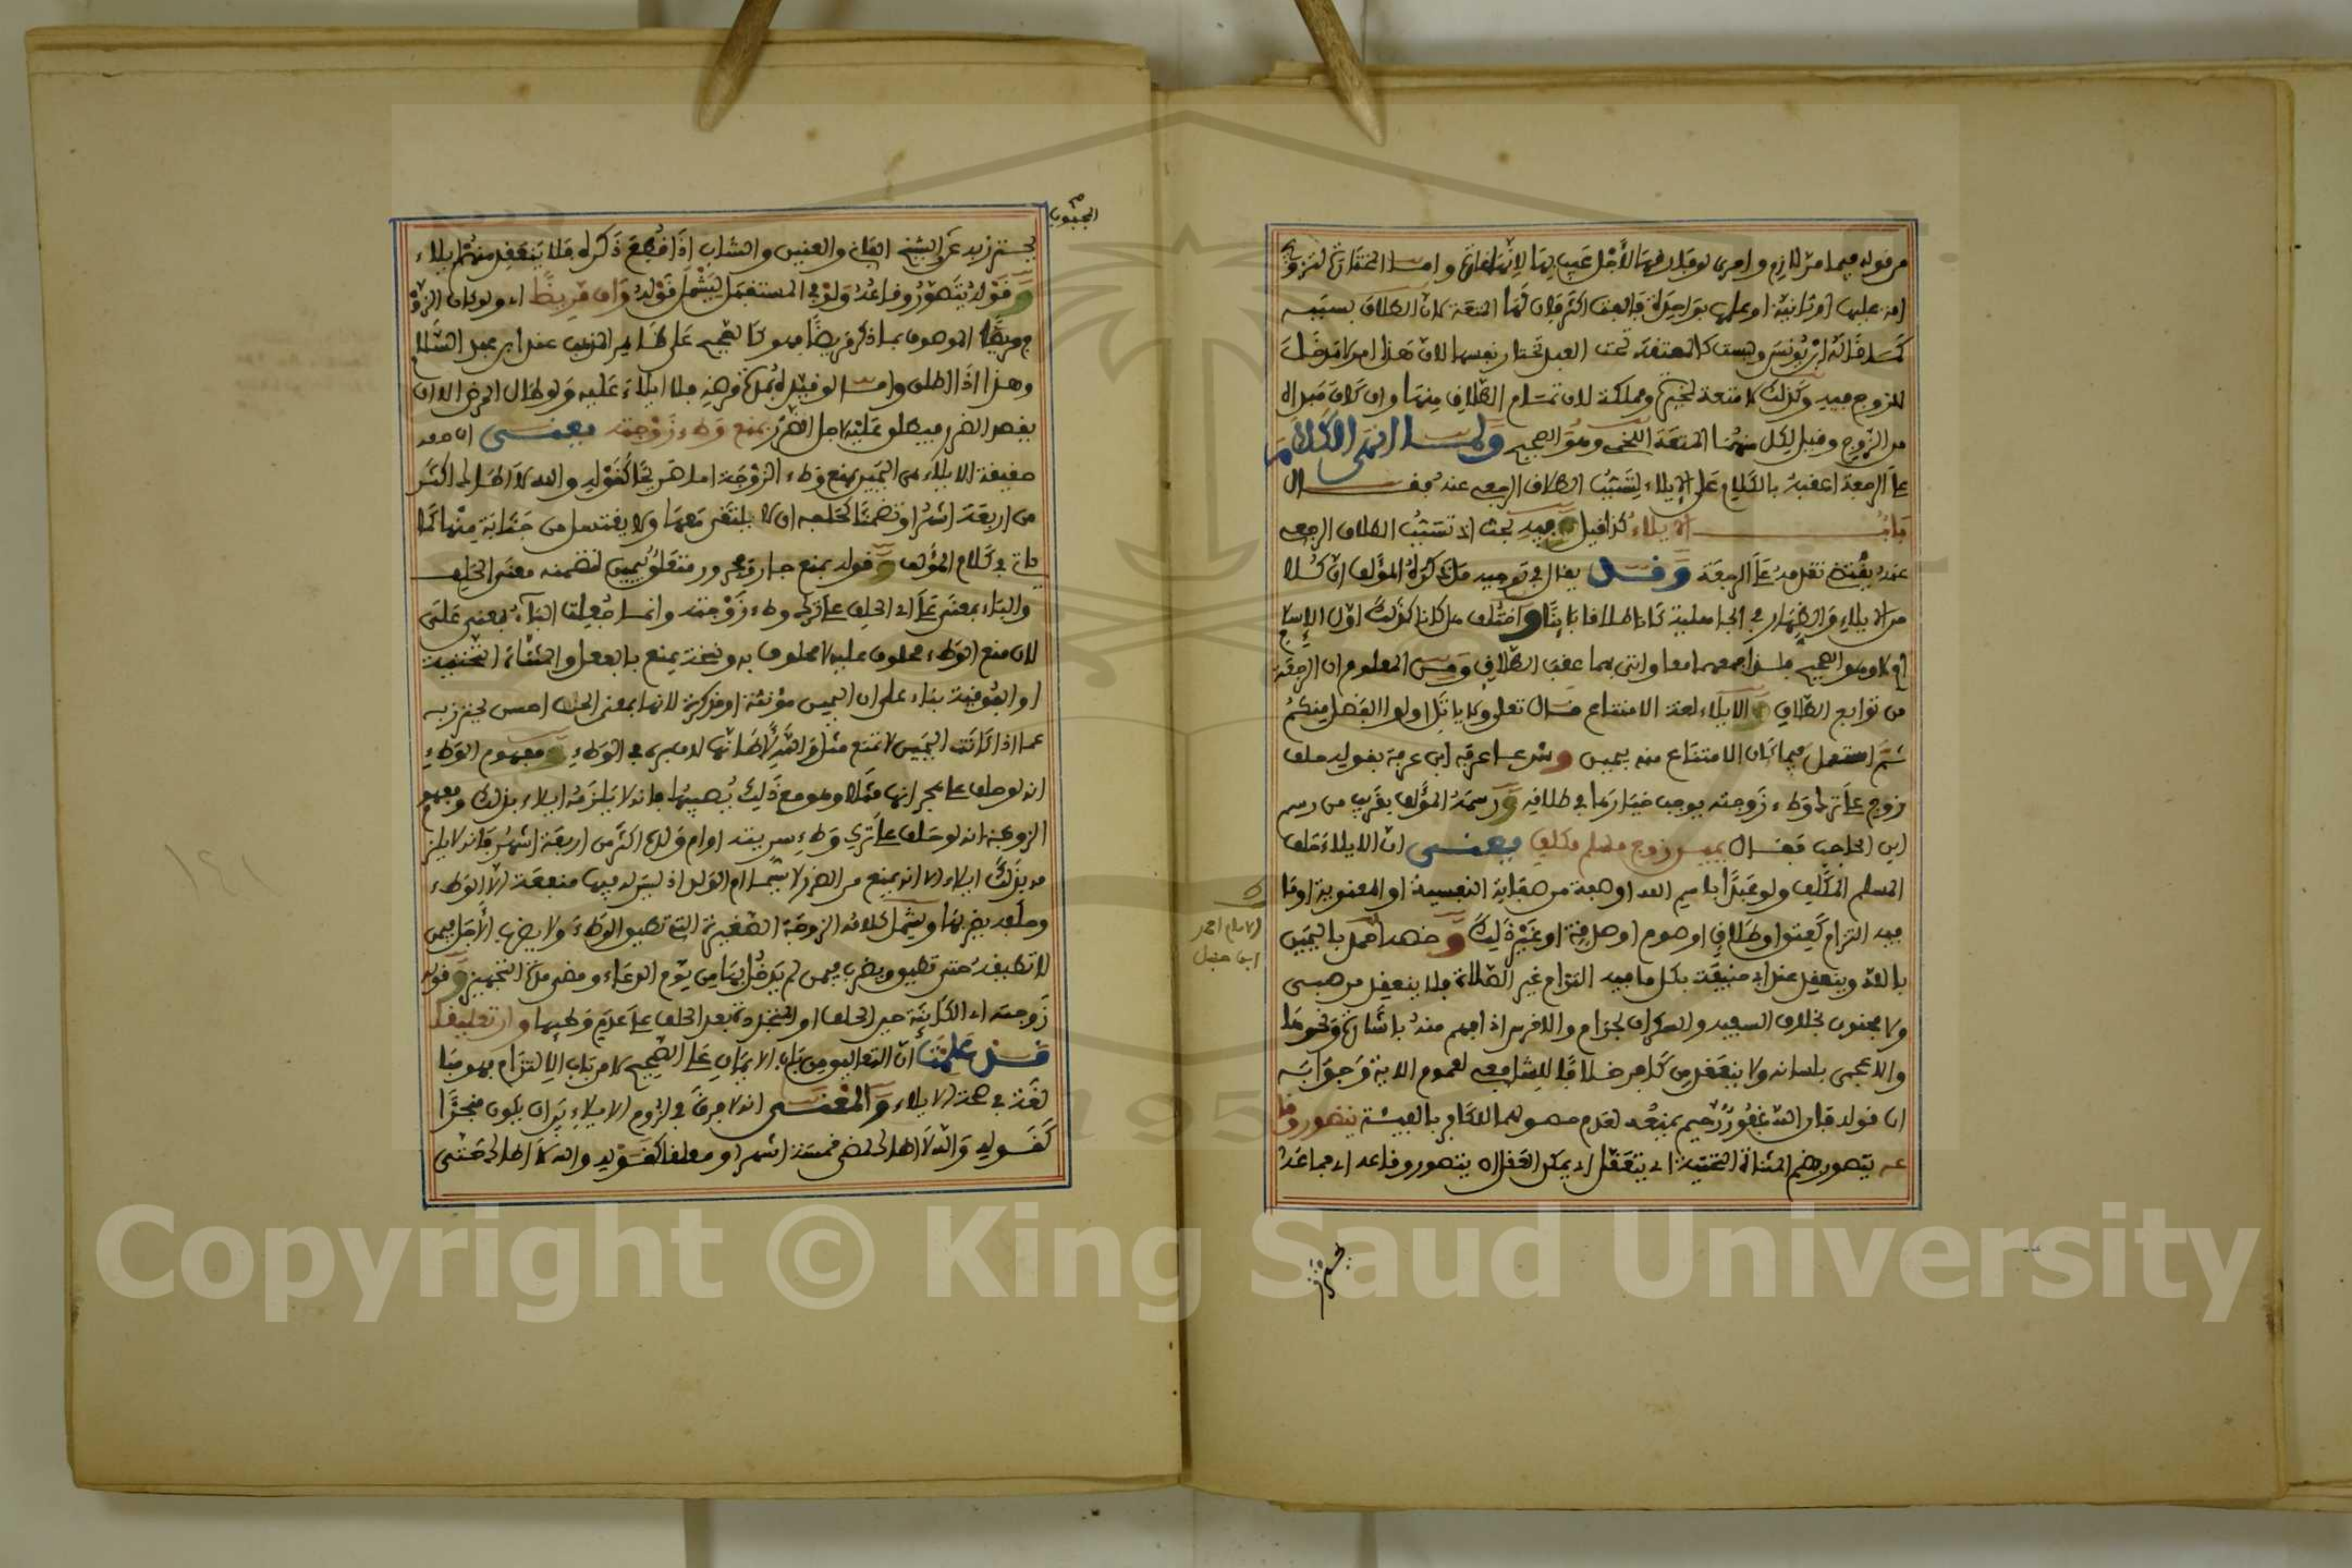 من قوله فيما مر للازم وامرى لو قيل فيها لأجل عيب بها لانها غارة وامـا المختارة لتزويج
امة عليها او ثانية او علمها بواحدة فالفت اكثر فان لها المتعة لان الطلاق بسببه
كما قاله ابن يونس وليست كالمعتقة تحت العبد تختار نفسها لان هذا امر لا مدخل
للزوج فيه وكذلك لا متعة لمخيرة ومملكة لان تمام الطلاق منها وان كان مبدأه
من الزوج وقيل لكل منهما المتعة اللخمي وهو الصحيح ولمـا انهى الكلام
على الرجعة اعقبه بالكلام على الإيلاء لتسبب الطلاق الرجعي عنه فقـال
بـاب الإيلاء كذا قيل وفيه بحث اذ تسبب الطلاق الرجعي
عنه يقتضي تقدمه على الرجعة وقـد يقال في توجيه ما ذكره المؤلف ان كلا
من الايلاء والظهار في الجاهلية كانا طلاقا بائنا واختلف هل كانا كذلك اول الاسلام
ام لا وهو الصحيح فلذا جمعهما معا واتى بهما عقب الطلاق ومن المعلوم ان الرجعة
من توابع الطلاق والايلاء لغة الامتناع قال تعالى ولا ياتل اولوا الفضل منكم
ثم استعمل فيما كان الامتناع منه بيمين وشرعا عرفه ابن عرفة بقوله حلف
زوج على ترك وطء زوجته يوجب خيارها في طلاقه ورسمه المؤلف بقريب من رسم
ابن الحاجب فقـال يمين زوج مسلم مكلف يعنـي ان الايلاء حلف
المسلم المكلف ولو عبدا باسم الله او صفة من صفاته النفسية او المعنوية او ما
فيه التزام كعتق او طلاق او صوم او صدقة او غير ذلك وخصه احمد باليمين
بالله وينعقد عند ابي حنيفة بكل ما فيه التزام غير الصلاة فلا ينعقد من صبي
ولا مجنون بخلاف السفيه والسكران بحرام والاخرس اذا فهم منه باشارة ونحوها
والاعجمي بلسانه ولا ينعقد من كافر خلافا للشافعي لعموم الاية وجوابه
ان قوله فان الله غفور رحيم يمنعه لعدم حصولهما للكافر بالفيئة يتصور وقا
عه يتصور بضم المثناة التحتية اي يتعقل اي يمكن العقل ان يتصور وقاعه اي جماعه
يحترز
الامام احمد
ابن حنبل
المجبوب
يحترز به عن الشيخ الفاني والعنين والشاب اذا قطع ذكره فلا ينعقد منهم ايلاء
وقوله يتصور وقاعه ولو في المستقبل ليشمل قوله وان مريضا اي ولو كان الزو
ج مريضا الموصوف بما ذكر مريضا فهو كالصحيح على ظاهر المذهب عند ابن عبد السلام
وهذا اذا اطلق وامـا لو قيد بمدة مرضه فلا ايلاء عليه ولو طال المرض الا ان
يقصد الضرر فيطلق عليه لاجل الضرر بمنع وطء زوجته يعنـي ان
حقيقة الايلاء هي اليمين بمنع وطء الزوجة اما صريحا كقوله والله لا اطأك اكثر
من اربعة اشهر او تضمنا كحلفه ان لا يلتقي معها ولا يغتسل من جنابة منها كما
ياتي في كلام المؤلف وقوله بمنع جار ومجرور متعلق بيمين لتضمنه معنى الحلف
والباء بمعنى على اي الحلف على ترك وطء زوجته وانمـا جعلت الباء بمعنى على
لان منع الوطء محلوف عليه لا محلوف به ونسخة يمنع بالفعل والمثناة التحتية
او الفوقية بناء على ان اليمين مؤنثة او مذكرة لانها بمعنى الحلف احسن يحترز به
عما اذا كانت اليمين لا تمنع مثل والله لاطأنها لامبره في الوطء ومفهوم الوطء
انه لو حلف على هجرانها مثلا وهو مع ذلك يصيبها فانه لا يلزمه ايلاء بذلك ومفهوم
الزوجة انه لو حلف على ترك وطء سريته او ام ولده اكثر من اربعة اشهر فانه لا يلز
مه بذلك ايلاء الا انه يمنع من الضرر لا سيما ام الولد اذ ليس له فيها منفعة الا الوطء
وحلفه يضر بها ويشمل كلامه الزوجة الصغيرة التي تطيق الوطء ولا يضرب الأجل فيمن
لا تطيقه حتى تطيق ويضرب فيمن لم يدخل بها من يوم الدعاء ومضي مدة التجهيز وقوله
زوجته اي الكائنة حين الحلف او المتجددة بعد الحلف على عدم وطئها وان تعليقا
قـد علمت ان التعاليق من باب الايمان على الصحيح لا من باب الالتزام فهو مبا
لغة في صحة الايلاء والمعنـى انه لا فرق في لزوم الايلاء بين ان يكون منجزا
كقوله والله لا اطأك لمضي خمسة اشهر او معلقا كقوله والله لا اطأك حتى